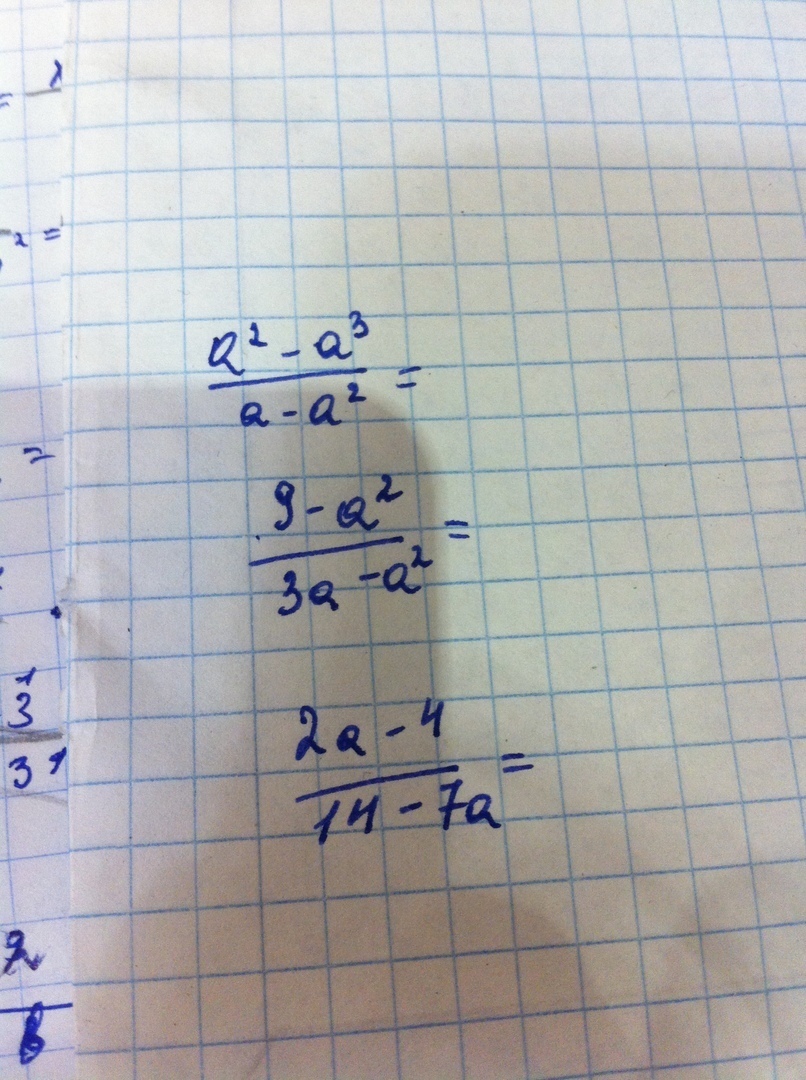 a² - a³
a - a²
=
9 - a²
3a - a²
=
2a - 4
14 - 7a
=
=
² =
=
3
3